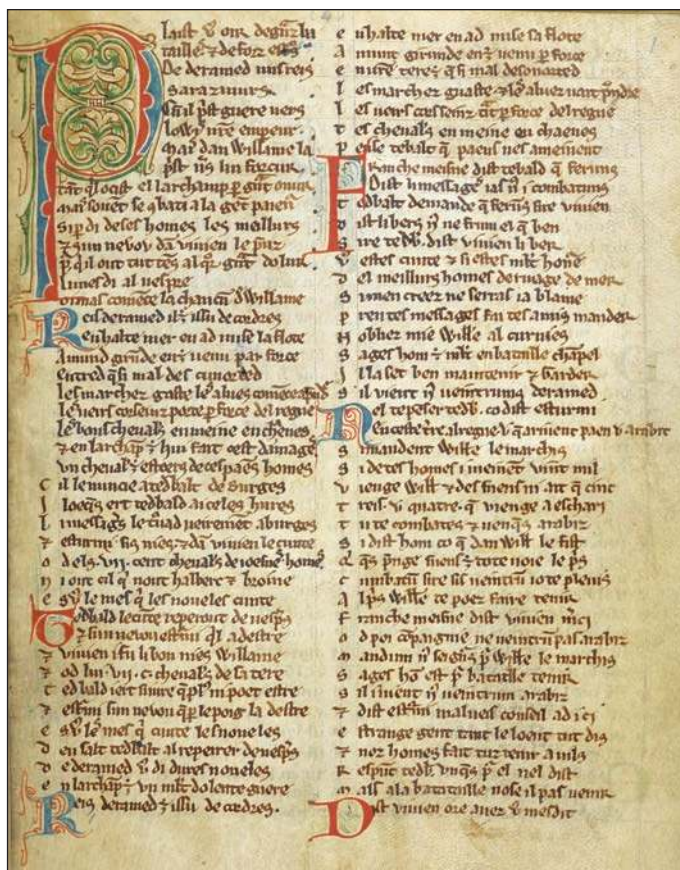 Plaist v oir de gnz ba
taille z de forz esturs
De deramed uns reis
sarazinurs
Cū il pst guere vers
lowis ure empeur
Mar dan willame la
pst vs lui forceur
tāt q̄l ocist el larchamp p gnt onur
mar souet se cōbati a la gēt paien
si pdi de ses homes les meillurs
z sun nevou dā vivien le pruz
p q̄ il out tut tēs al q̄r gnt dolur
lunesdi al vespre
ormas comēce la chancū d willame
Reis deramed il ē issu de cordres
En halte mer en ad mise la flote
Amund girunde en ē venu par force
les marchez guaste les aluës
les veirs cors seinz porte p force del regne
les bons chevals en meine en cheines
z en larchāp ē hui fait cest damage
un chevals est oers de ces paens homes
Cil le nuncie a tedbalt de burges
Iloeqs ert tedbald a iceles hures
li messags le truad veirement a burges
z esturmi sis niés z dā vivien le cunte
od els .vii. cent chevals de joefne home
n i out cil q̄ nout halberc z broine
e sv le mes q̄ les noveles cunte
Tedbald le cūte reperout de vespes
z sun nevou esturmi q̄l a destre
z vivien i fu li bon niés willame
z od lui .vii. c. chevals de sa tere
tedbald iert si ivre q̄ pl n i poet estre
z esturmi sun nevou q̄ p le poig la destre
e sv le mes q̄ cunte les noveles
deu salt tedbalt al repeirer de vespes
de deramed v di dures noveles
en larchāp ē vii mlt dolente guere
Reis deramed ē issu de cordres
en halte mer en ad mise sa flote
Amunt girunde en ē venu p force
en ure tere q̄ si mal desonorted
les marchez guaste z les aluez vait pndre
les veirs cors seinz trait p force del regne
tes chevals en meine en chaenes
pense tebalt q̄ paens nes ameinent
Franche meisne dist tebald q̄ ferums
Dist li messags ias n i combatums
tedbalt demande q̄ ferūs sire vivien
dist li bers n ne frum el q̄ ben
Sire tedb. dist vivien li ber
v estes cunte z si estes mlt honē
des meillurs homes de rivage de mer
Si men creez ne serras ia blame
pren tes messages fai tes amis mander
N obliez mie will'e al curb nies
Sages hom ē mlt en bataille chāpel
Il la set ben maintenir z garder
S il vient n veintrums deramed
Nel te penser tedb. co dist esturmi
En ceste tere al regne v. q̄ arivent paen v arabit
Si mandent will'e le marchis
Si de tes homes i meinet vint mil
vienge will' z des suens n ait q̄ cinc
treis v quatre q̄ vienge a eschari
tu te combates z venqs arabiz
Si dist hom co q̄ dan will' le fist
q̄ qs prenge suens ē tote voie le pris
cumbatū sire sis veintrū io te plevis
al pris will'e te poez faire tenir
Franche meisne dist vivien mci
od poi cōpaignie ne veintrū pas arabiz
mandum n seignurs p will'e le marchis
Sages hō est p bataille tenir
Sil i vent n veintrum arabiz
z dist esturmi malveis conseil ad ici
estrange gent tant le loent tut dis
z noz homes fait tuz tenir a vils
Respunt tedb. unqs p el nel dist
mais a la bataille nose il pas venir
Dist vivien ore avez v mesdit